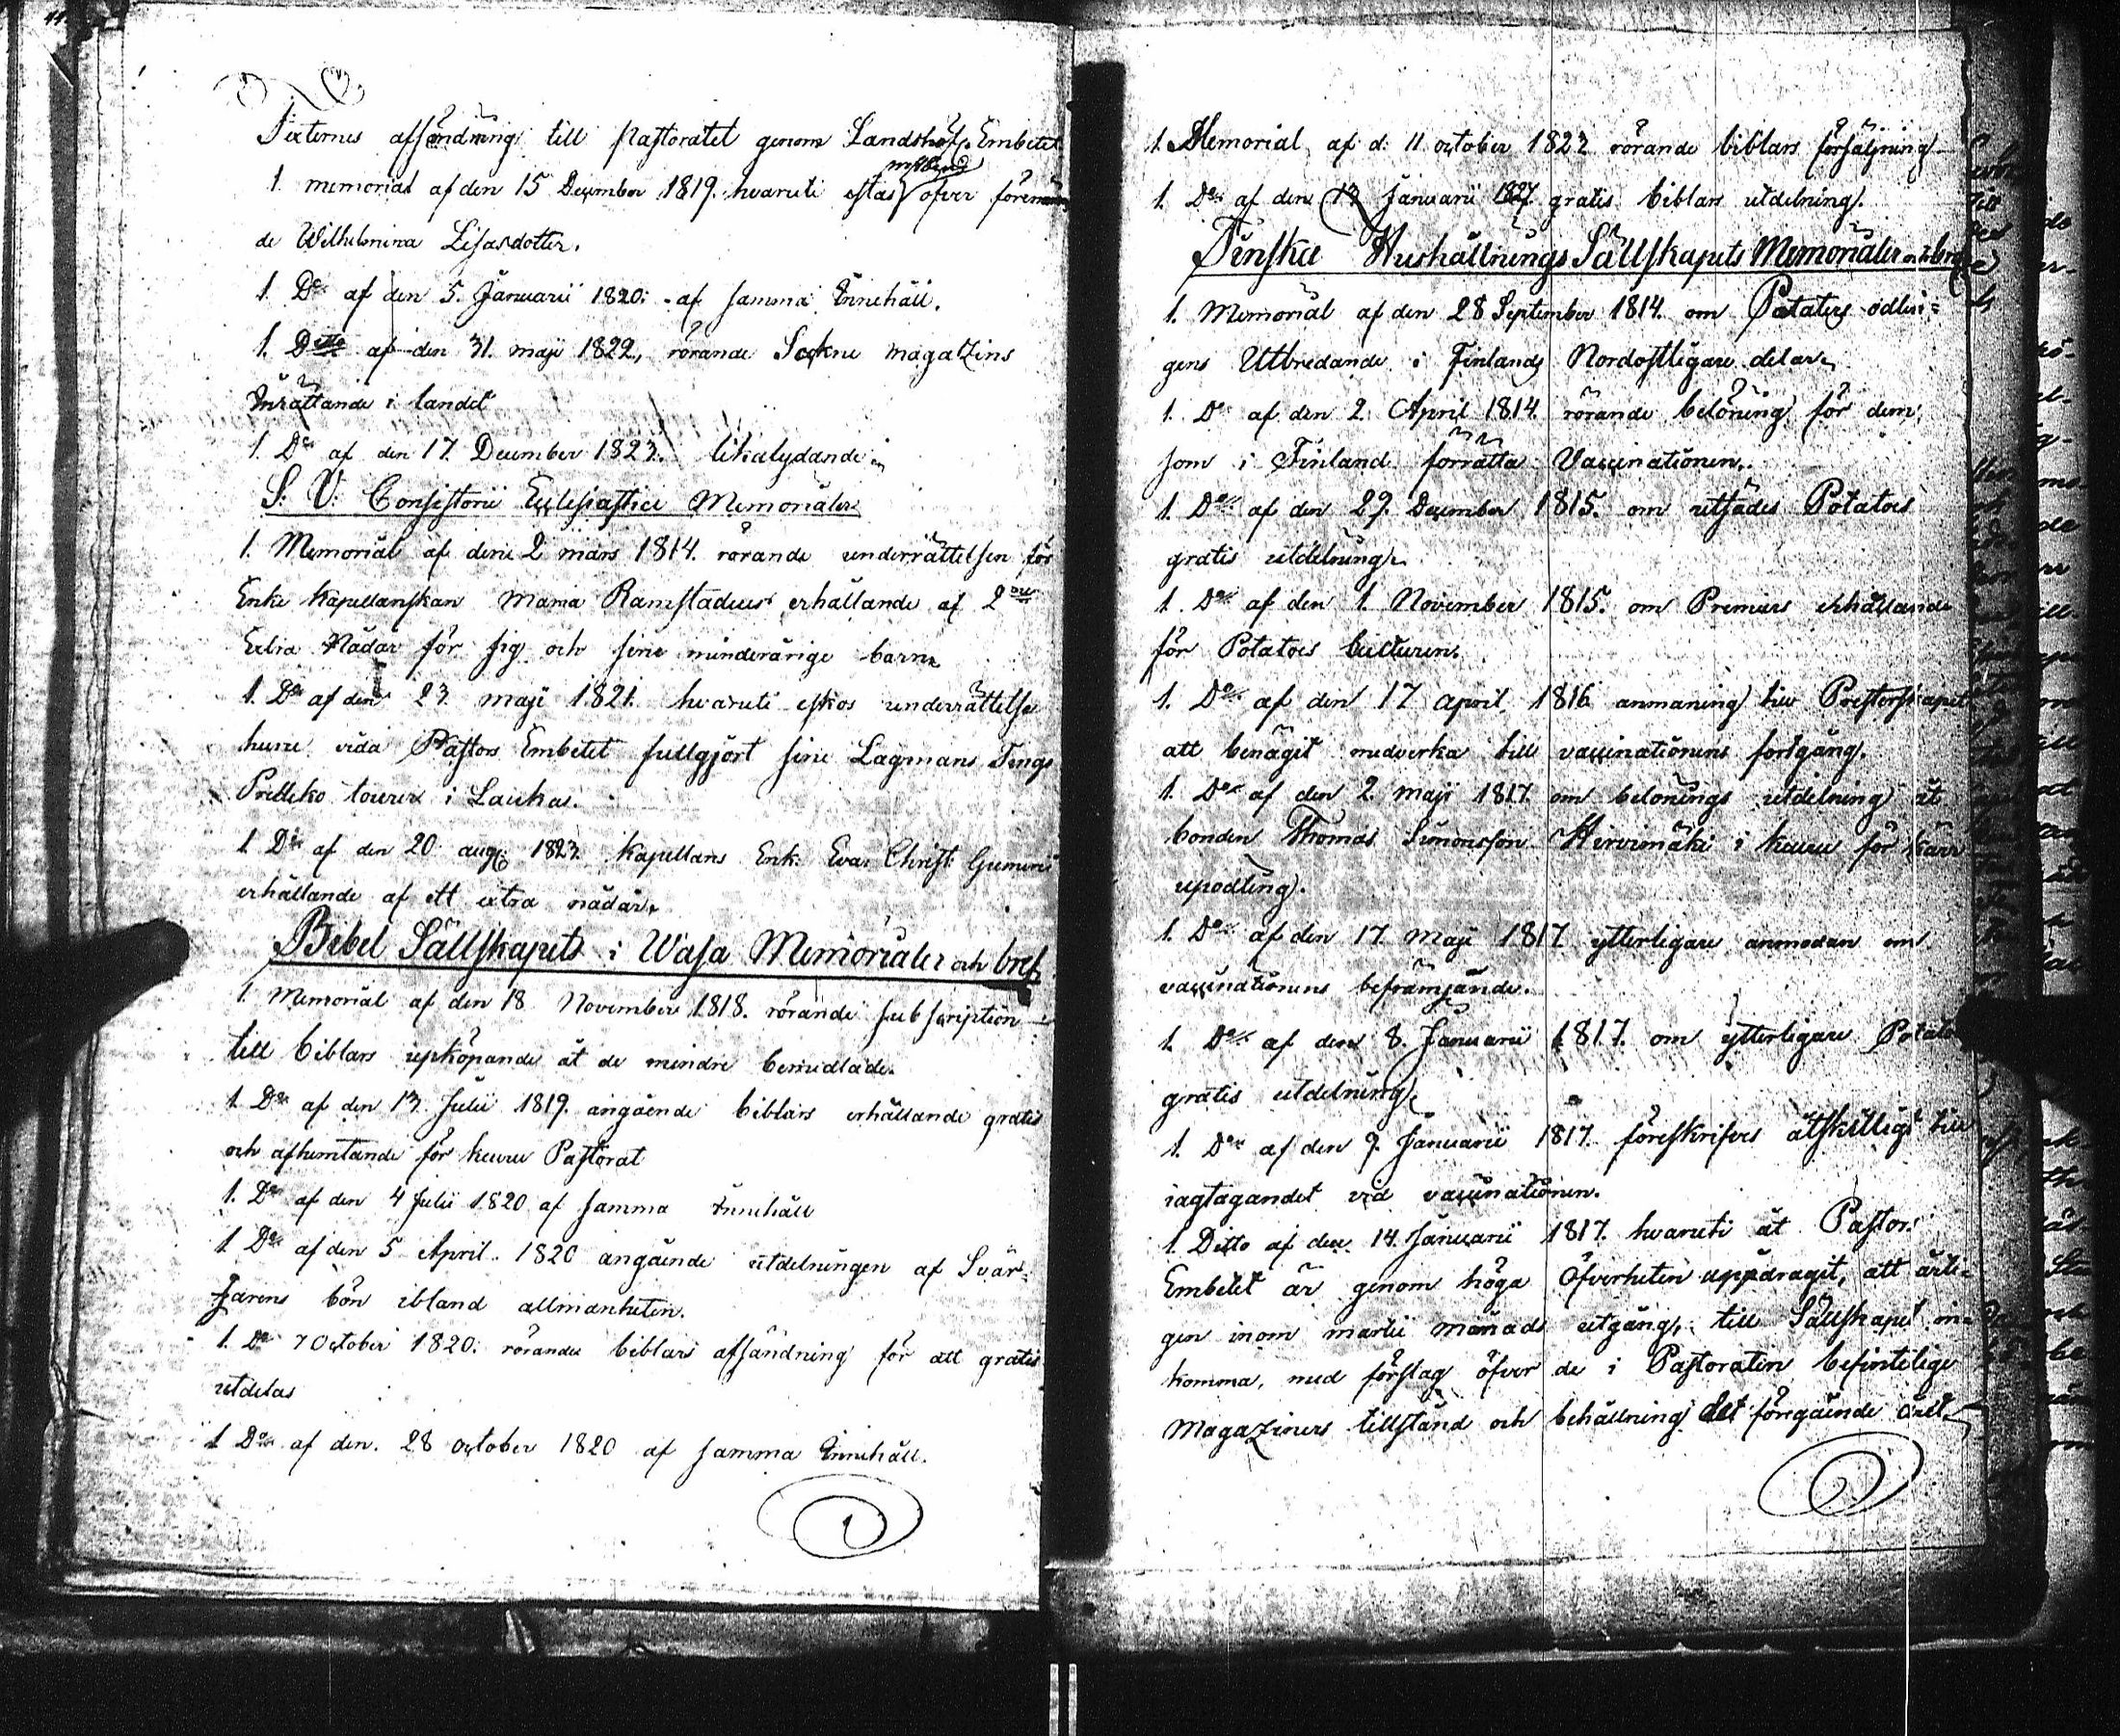 Texternes afsändning till Pastoratet genom Landshöfd. Embetet
1. memorial af den 15 December 1819. hvaruti æstas öfver
de Wilhelmina Lisasdotter.
1. Do af den 5. Januarii 1820. af samma Innehåll.
1. Ditto af den 31. maji 1822, rörande Sockne magatzins
Inrättande i landet
1. Do af den 17. December 1823. likalydande
S. V. Consistorii Ecclesiastici Memorialer
1. Memorial af den 2 mars 1814. rörande underrättelsen för
Enke Kapellanskan Maria Ramstadius erhållande af 2ne
Extra Nådår för sig och sine minderårige barn
1. Do af den 23. maji 1821. hvaruti æskos underrättelse
huru vida Pastors Embetet fullgjort sine Lagmans Tings
Prediko tourer i Lauka.
1. Do af den 20 aug. 1823. Kapellans Enk. Eva Christ.
erhållande af ett extra nådår.
Bibel Sällskapets i Wasa Memorialer och bref
1. Memorial af den 18 November 1818. rörande subscription
till biblars upköpande åt de mindre bemedlade.
1. Do af den 13. Julii 1819. angående biblars erhållande gratis
och afhemtande för Keuru Pastorat
1. Do af den 4 Julii 1820 af samma Innehåll
1. Do af den 5 April 1820 angående utdelningen af Svär-
jarens bön ibland allmänheten.
1. Do 7 October 1820. rörande biblars afsändning för att gratis
utdelas
1 Do af den 28 october 1820 af samma Innehåll.
1. Memorial af d. 11 october 1823 rörande biblars försäljning
1. Do af den 13 Januarii 1827. gratis biblars utdelning.
Finska Hushållnings Sällskapets Memorialer
1. Memorial af den 28 September 1814. om Potaters odlin=
gens Utbredande i Finlands Nordostligare delar
1. Do af den 2. April 1814 rörande belöning för dem,
som i Finland förrätta Vaccinationen.
1. Do af den 29. December 1815. om utsädes Potatoes
gratis utdelning.
1. Do af den 1. November 1815. om Premiers erhållande
för Potatoes Culturen.
1. Do af den 17 april 1816 anmaning till Presterskapet
att benägit medverka till vaccinationens fortgång.
1. Do af den 2. maji 1817. om belönings utdelning åt
bonden Thomas Simonsson Hirvimäki i Keuru för kärr
upodling.
1. Do af den 17. maji 1817 ytterligare anmodan om
vaccinationens befrämjande.
1. Do af den 8. Januarii 1817. om ytterligare Potatoes
gratis utdelning.
1. Do af den 9. Januarii 1817. föreskrifves åtskilligt till
iagtagandet vid vaccinationen.
1. Ditto af den 14. Januarii 1817. hvaruti åt Pastors
Embetet är genom höga Öfverheten uppdragit, att årli=
gen inom martii månads utgång, till Sällskapet in=
komma, med förslag öfver de i Pastoraten befintelige
Magaziners tillstånd och behållning det föregående året